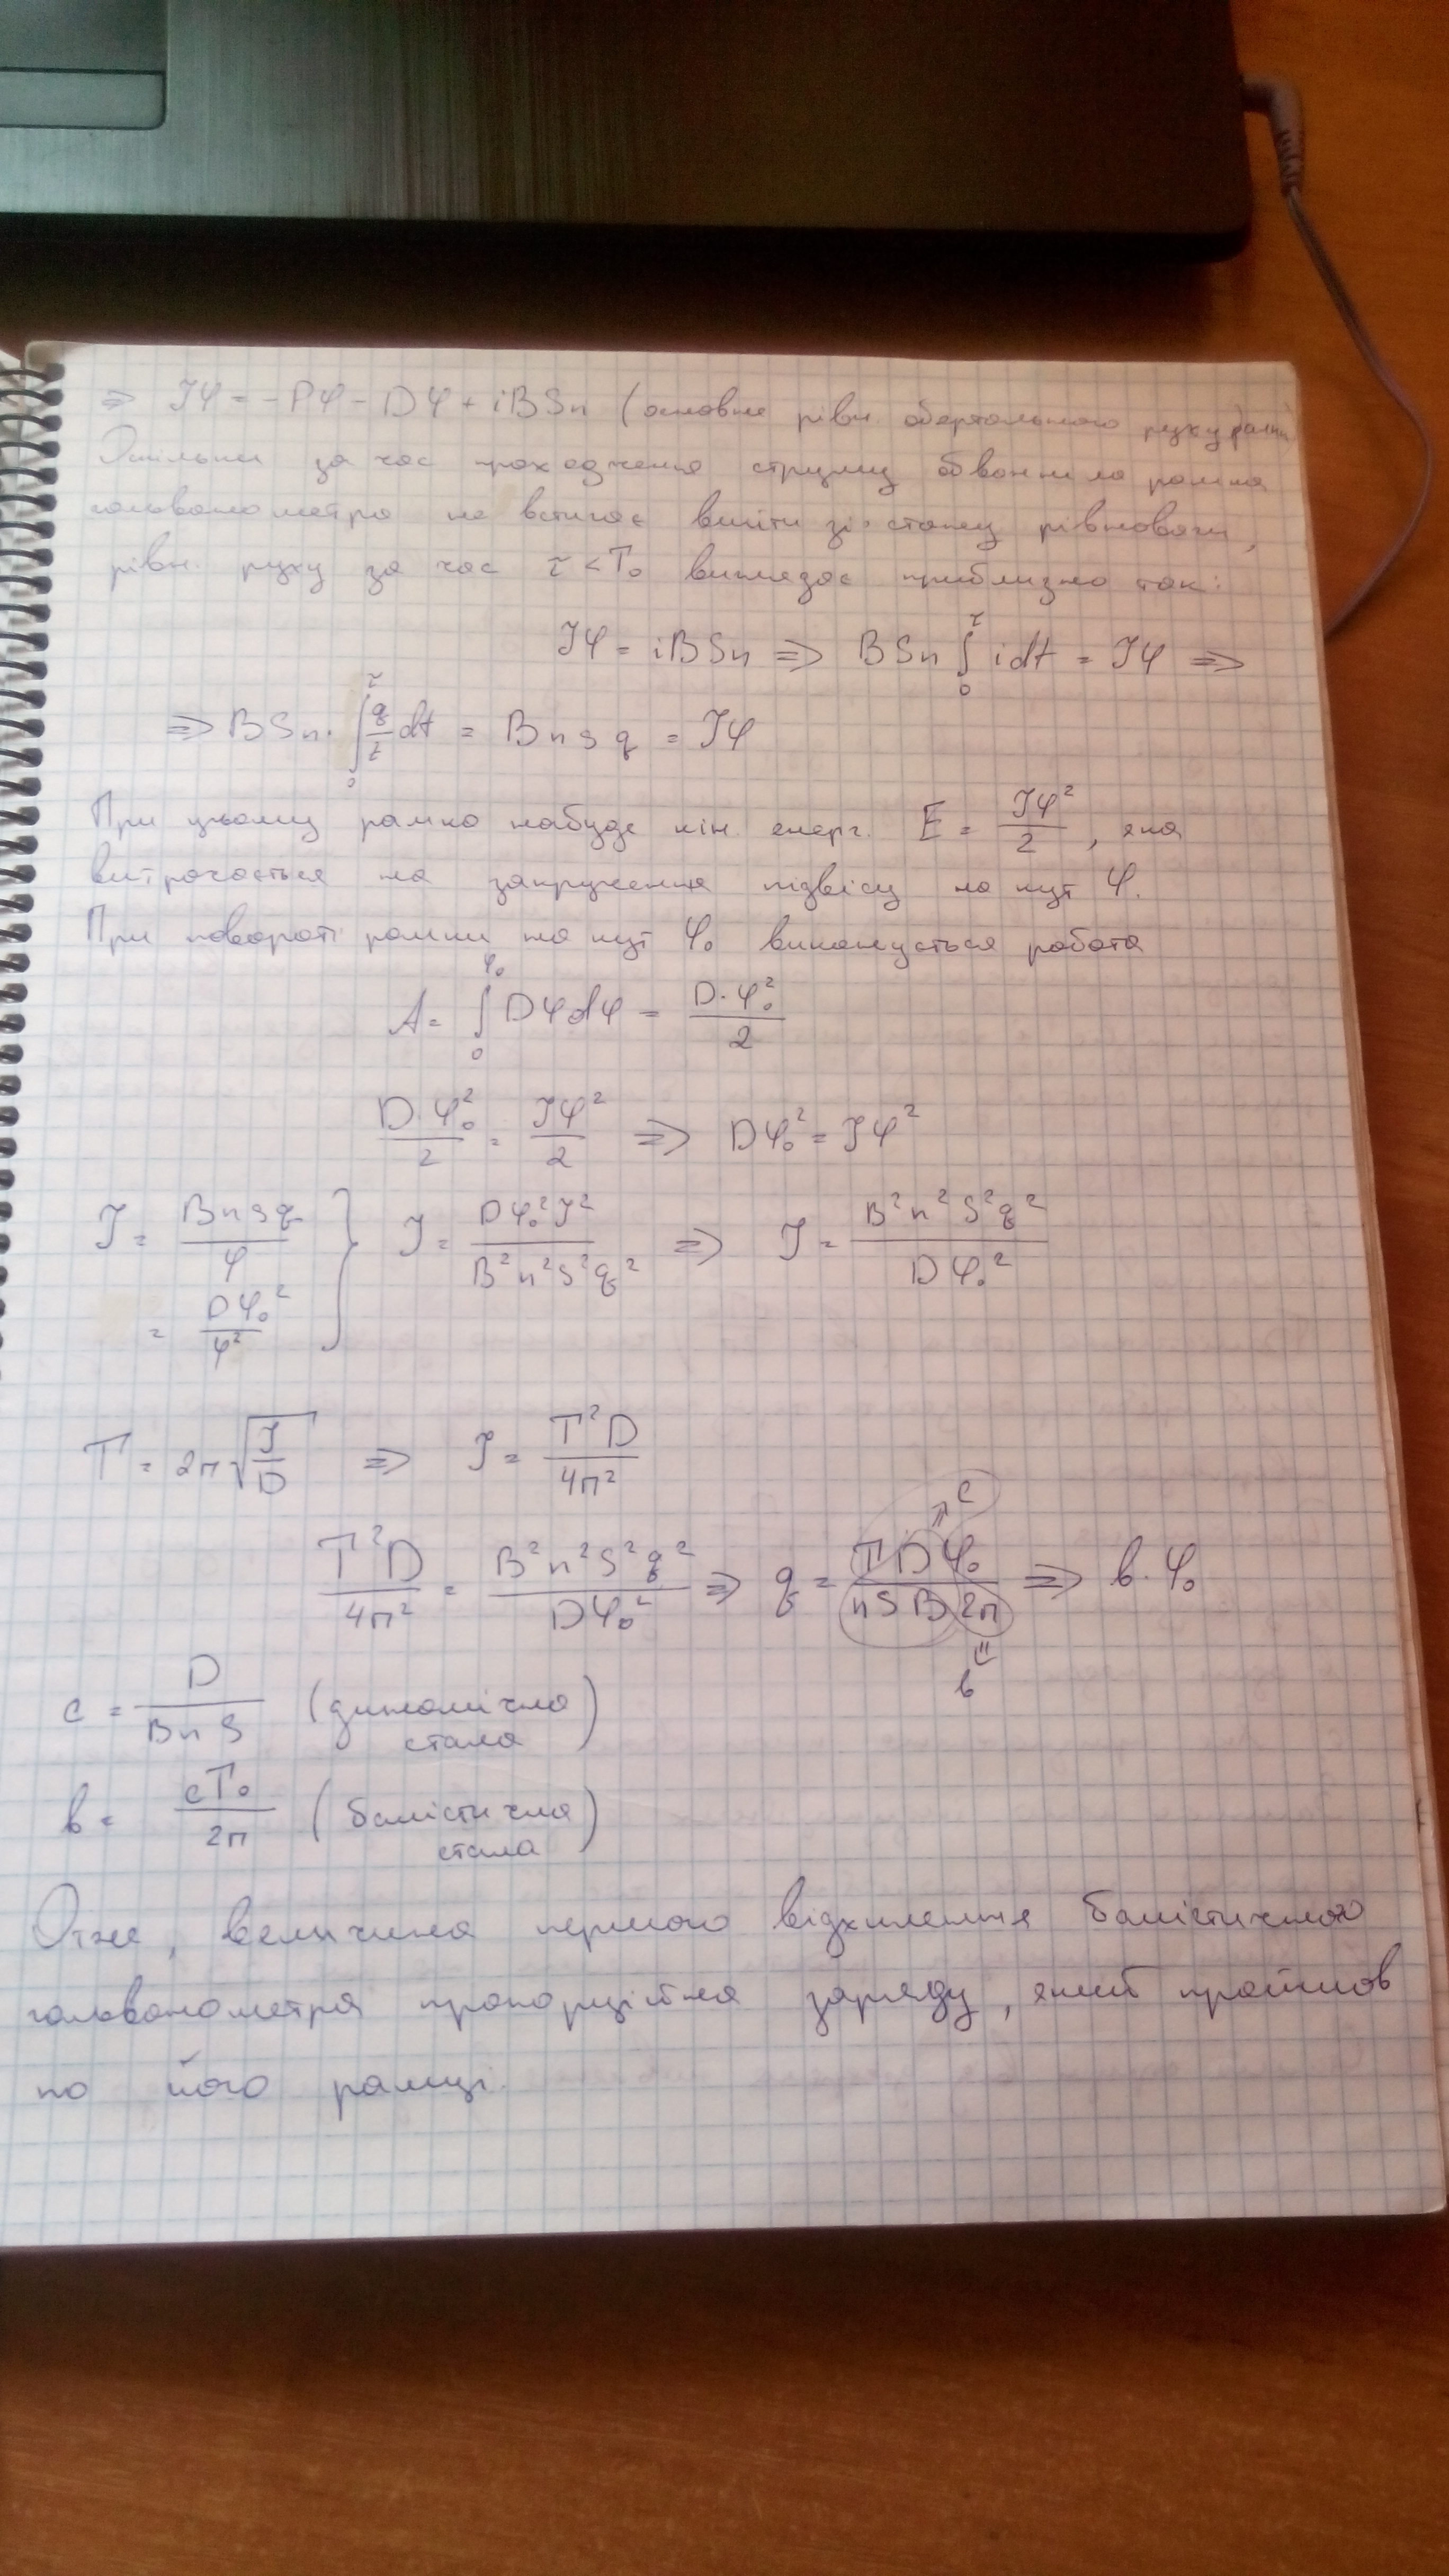 ⇒ Jφ = -Pφ - Dφ + iBSn (основне рівн. обертального руху рамки)
Оскільки за час проходження струму обвонила рамка
гальванометра не встигає вийти зі стану рівноваги,
рівн. руху за час τ < T₀ виглядає приблизно так:
Jφ = iBSn ⇒ BSn ∫₀^τ i dt = Jφ ⇒
⇒ BSn · ∫₀^τ q/t dt = Bnsq = Jφ
При цьому рамка набуде кін. енерг. E = Jφ²/2, яка
витрачається на закручення підвісу на кут φ.
При повороті рамки на кут φ₀ виконується робота
A = ∫₀^φ₀ Dφdφ = D·φ₀²/2
D·φ₀²/2 = Jφ²/2 ⇒ Dφ₀² = Jφ²
J = Bnsq/φ } J = Dφ₀²J²/B²n²S²q² ⇒ J = B²n²S²q²/Dφ₀²
= Dφ₀²/φ²
T = 2π√(J/D) ⇒ J = T²D/4π²
T²D/4π² = B²n²S²q²/Dφ₀² ⇒ q = TDφ₀/nSB2π ⇒ b·φ₀
⇒ c
= b
c = D/BnS (динамічна стала)
b = cT₀/2π (балістична стала)
Отже, величина першого відхилення балістичного
гальванометра пропорційна заряду, який пройшов
по його рамці.